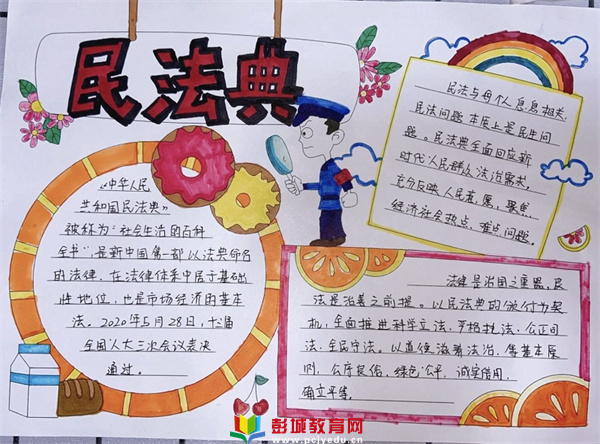 民法典
《中华人民
共和国民法典》
被称为“社会生活的百科
全书”，是新中国第一部以法典命名
的法律，在法律体系中居于基础
性地位，也是市场经济的基本
法。2020年5月28日，十三届
全国人大三次会议表决
通过。
民法与每个人息息相关，
民法问题本质上是民生问
题。民法典全面回应新
时代人民群众法治需求，
充分反映人民意愿，聚焦
经济社会热点、难点问题。
法律是治国之重器，良
法是治善之前提。以民法典的颁行为契
机，全面推进科学立法、严格执法、公正司
法、全民守法。以道德滋养法治，
则，公序良俗，绿色公平，诚实信用，
确立平等。
彭城教育网
www.pcjyedu.cn